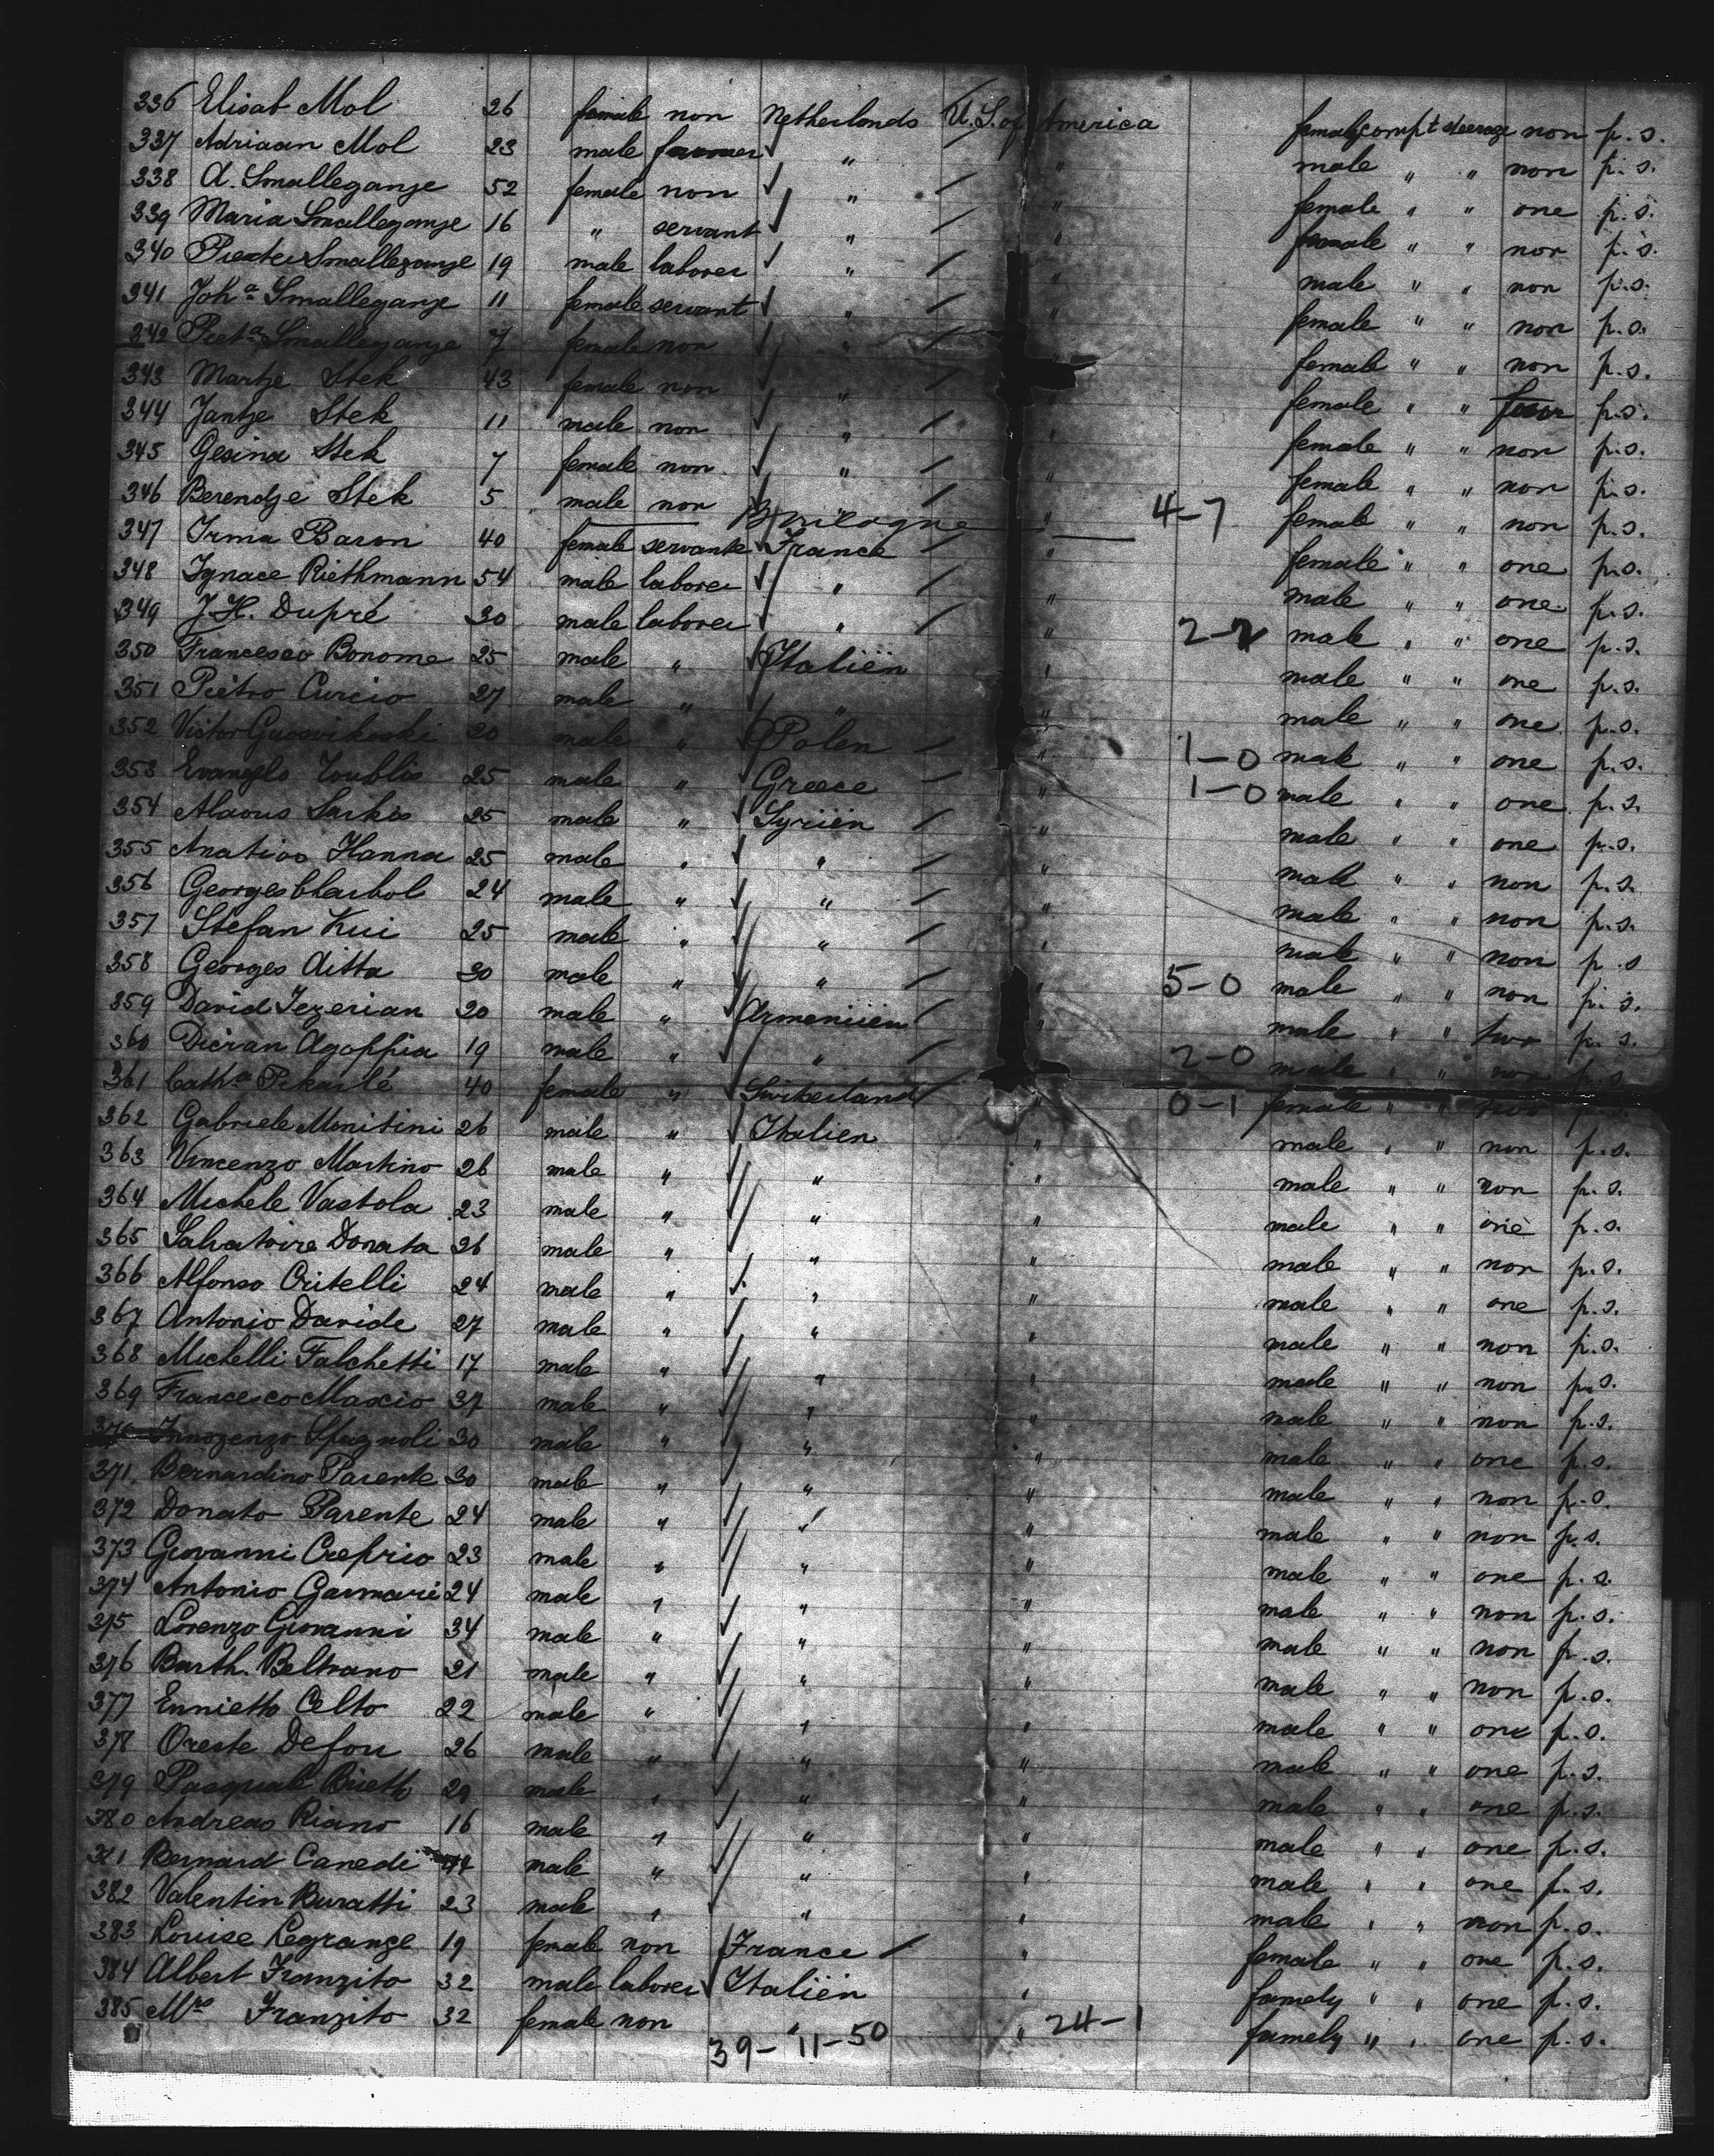 336 Elisab Mol 26 female non Netherlands U.S. of America female compt steerage non p.s.
337 Adriaan Mol 23 male farmer " " male " " non p.s.
338 A. Smalleganje 52 female non " " female " " one p.s.
339 Maria Smalleganje 16 " servant " " female " " non p.s.
340 Pieter Smalleganje 19 male laborer " " male " " non p.s.
341 Joha Smalleganje 11 female servant " " female " " non p.s.
342 Pieta Smalleganje 7 female non " " female " " non p.s.
343 Martje Stek 43 female non " " female " " four p.s.
344 Jantje Stek 11 male non " " female " " non p.s.
345 Gesina Stek 7 female non " " female " " non p.s.
346 Berendje Stek 5 male non " " 4-7 female " " non p.s.
347 Irma Baron 40 female servante France " female " " one p.s.
348 Ignace Riethmann 54 male laborer " " male " " one p.s.
349 J.H. Dupré 30 male laborer " " 2-2 male " " one p.s.
350 Francesco Bonome 25 male " Italiën " male " " one p.s.
351 Pietro Curcio 27 male " " " male " " one p.s.
352 Victor 20 male " Polen " 1-0 male " " one p.s.
353 Evangelo Toublis 25 male " Greece " 1-0 male " " one p.s.
354 Alaous Sarkis 25 male " Syriën " male " " one p.s.
355 Anatios Hanna 25 male " " " male " " non p.s.
356 Georges Charbol 24 male " " " male " " non p.s.
357 Stefan Kui 25 male " " " male " " non p.s
358 Georges Aitta 30 male " " " 5-0 male " " non p.s.
359 David Jezerian 20 male " Armeniien " male " " two p.s.
360 Dicran Agoppia 19 male " " " 2-0 male " " non p.s
361 Catha Pekarlé 40 female " Switserland " 0-1 female " " two p.s.
362 Gabriele Menitini 26 male " Italien " male " " non p.s.
363 Vincenzo Martino 26 male " " " male " " non p.s.
364 Michele Vastola 23 male " " " male " " one p.s.
365 Salvatoire Donata 26 male " " " male " " non p.s.
366 Alfonso Critelli 24 male " " " male " " one p.s.
367 Antonio Davide 27 male " " " male " " non p.s.
368 Michelli Falchetti 17 male " " " male " " non p.s.
369 Francesco Mascio 37 male " " " male " " non p.s.
370 Innozenzo Spagnoli 30 male " " " male " " one p.s.
371 Bernardino Parente 30 male " " " male " " non p.s.
372 Donato Parente 24 male " " " male " " non p.s.
373 Giovanni Crefrio 23 male " " " male " " one p.s.
374 Antonio Garmari 24 male " " " male " " non p.s.
375 Lorenzo Giovanni 34 male " " " male " " non p.s.
376 Barth. Beltrano 21 male " " " male " " non p.s.
377 Ennietto Celto 22 male " " " male " " one p.s.
378 Oreste Defou 26 male " " " male " " one p.s.
379 Pasquale 29 male " " " male " " one p.s.
380 Andreas Riano 16 male " " " male " " one p.s.
381 Bernard Canedi 44 male " " " male " " one p.s.
382 Valentin Buratti 23 male " " " male " " non p.s.
383 Louise Legrange 19 female non France " female " " one p.s.
384 Albert Franzito 32 male laborer Italiën " famely " " one p.s.
385 Mrs Franzito 32 female non " " 24-1 famely " " one p.s.
39-11-50